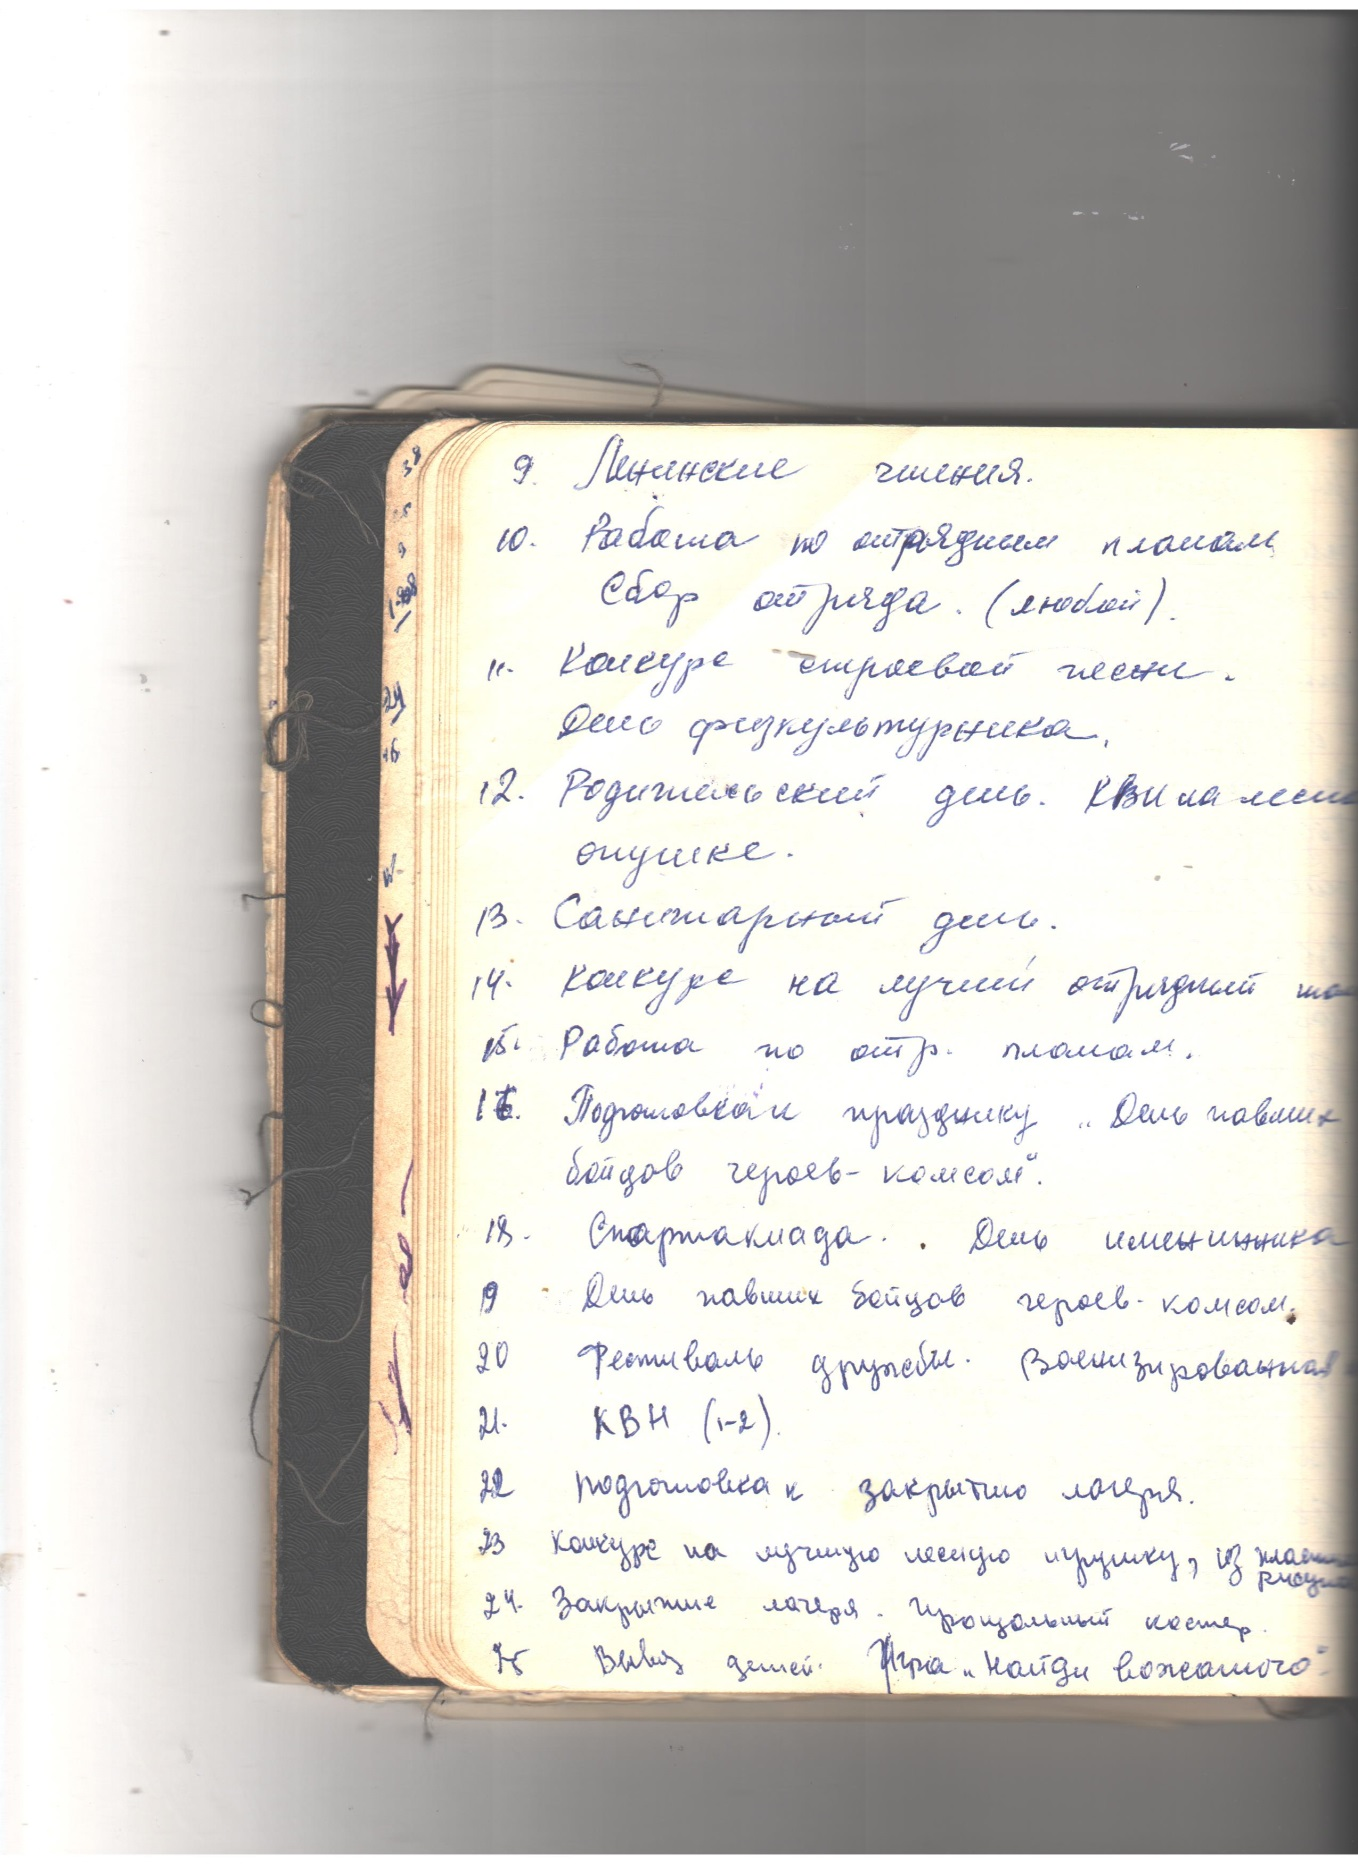 9. Ленинские чтения.
10. Работа по отрядным планам
Сбор отряда. (любой).
11. Конкурс строевой песни.
День физкультурника.
12. Родительский день. КВН на лесн
опушке.
13. Санитарный день.
14. Конкурс на лучший отрядный
15. Работа по отр. планам.
16. Подготовка к празднику „День павших
бойцов героев-комсом".
18. Спартакиада. День именинника
19 День павших бойцов героев-комсом.
20 Фестиваль дружбы. Военизированная
21. КВН (1-2).
22 Подготовка к закрытию лагеря.
23 Конкурс на лучшую лесную игрушку, из
24. Закрытие лагеря. Прощальный костер.
25 Вывоз детей. Игра „Найди вожатого"